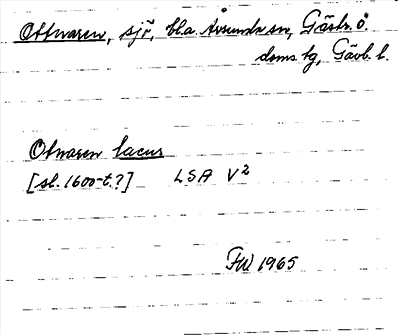 Ottnaren, sjö, bl.a Årsunda sn, Gästr. ö.
doms tg, Gävl. l.
Otnaren lacus
[sl. 1600-t.?] LSA V2
FW 1965